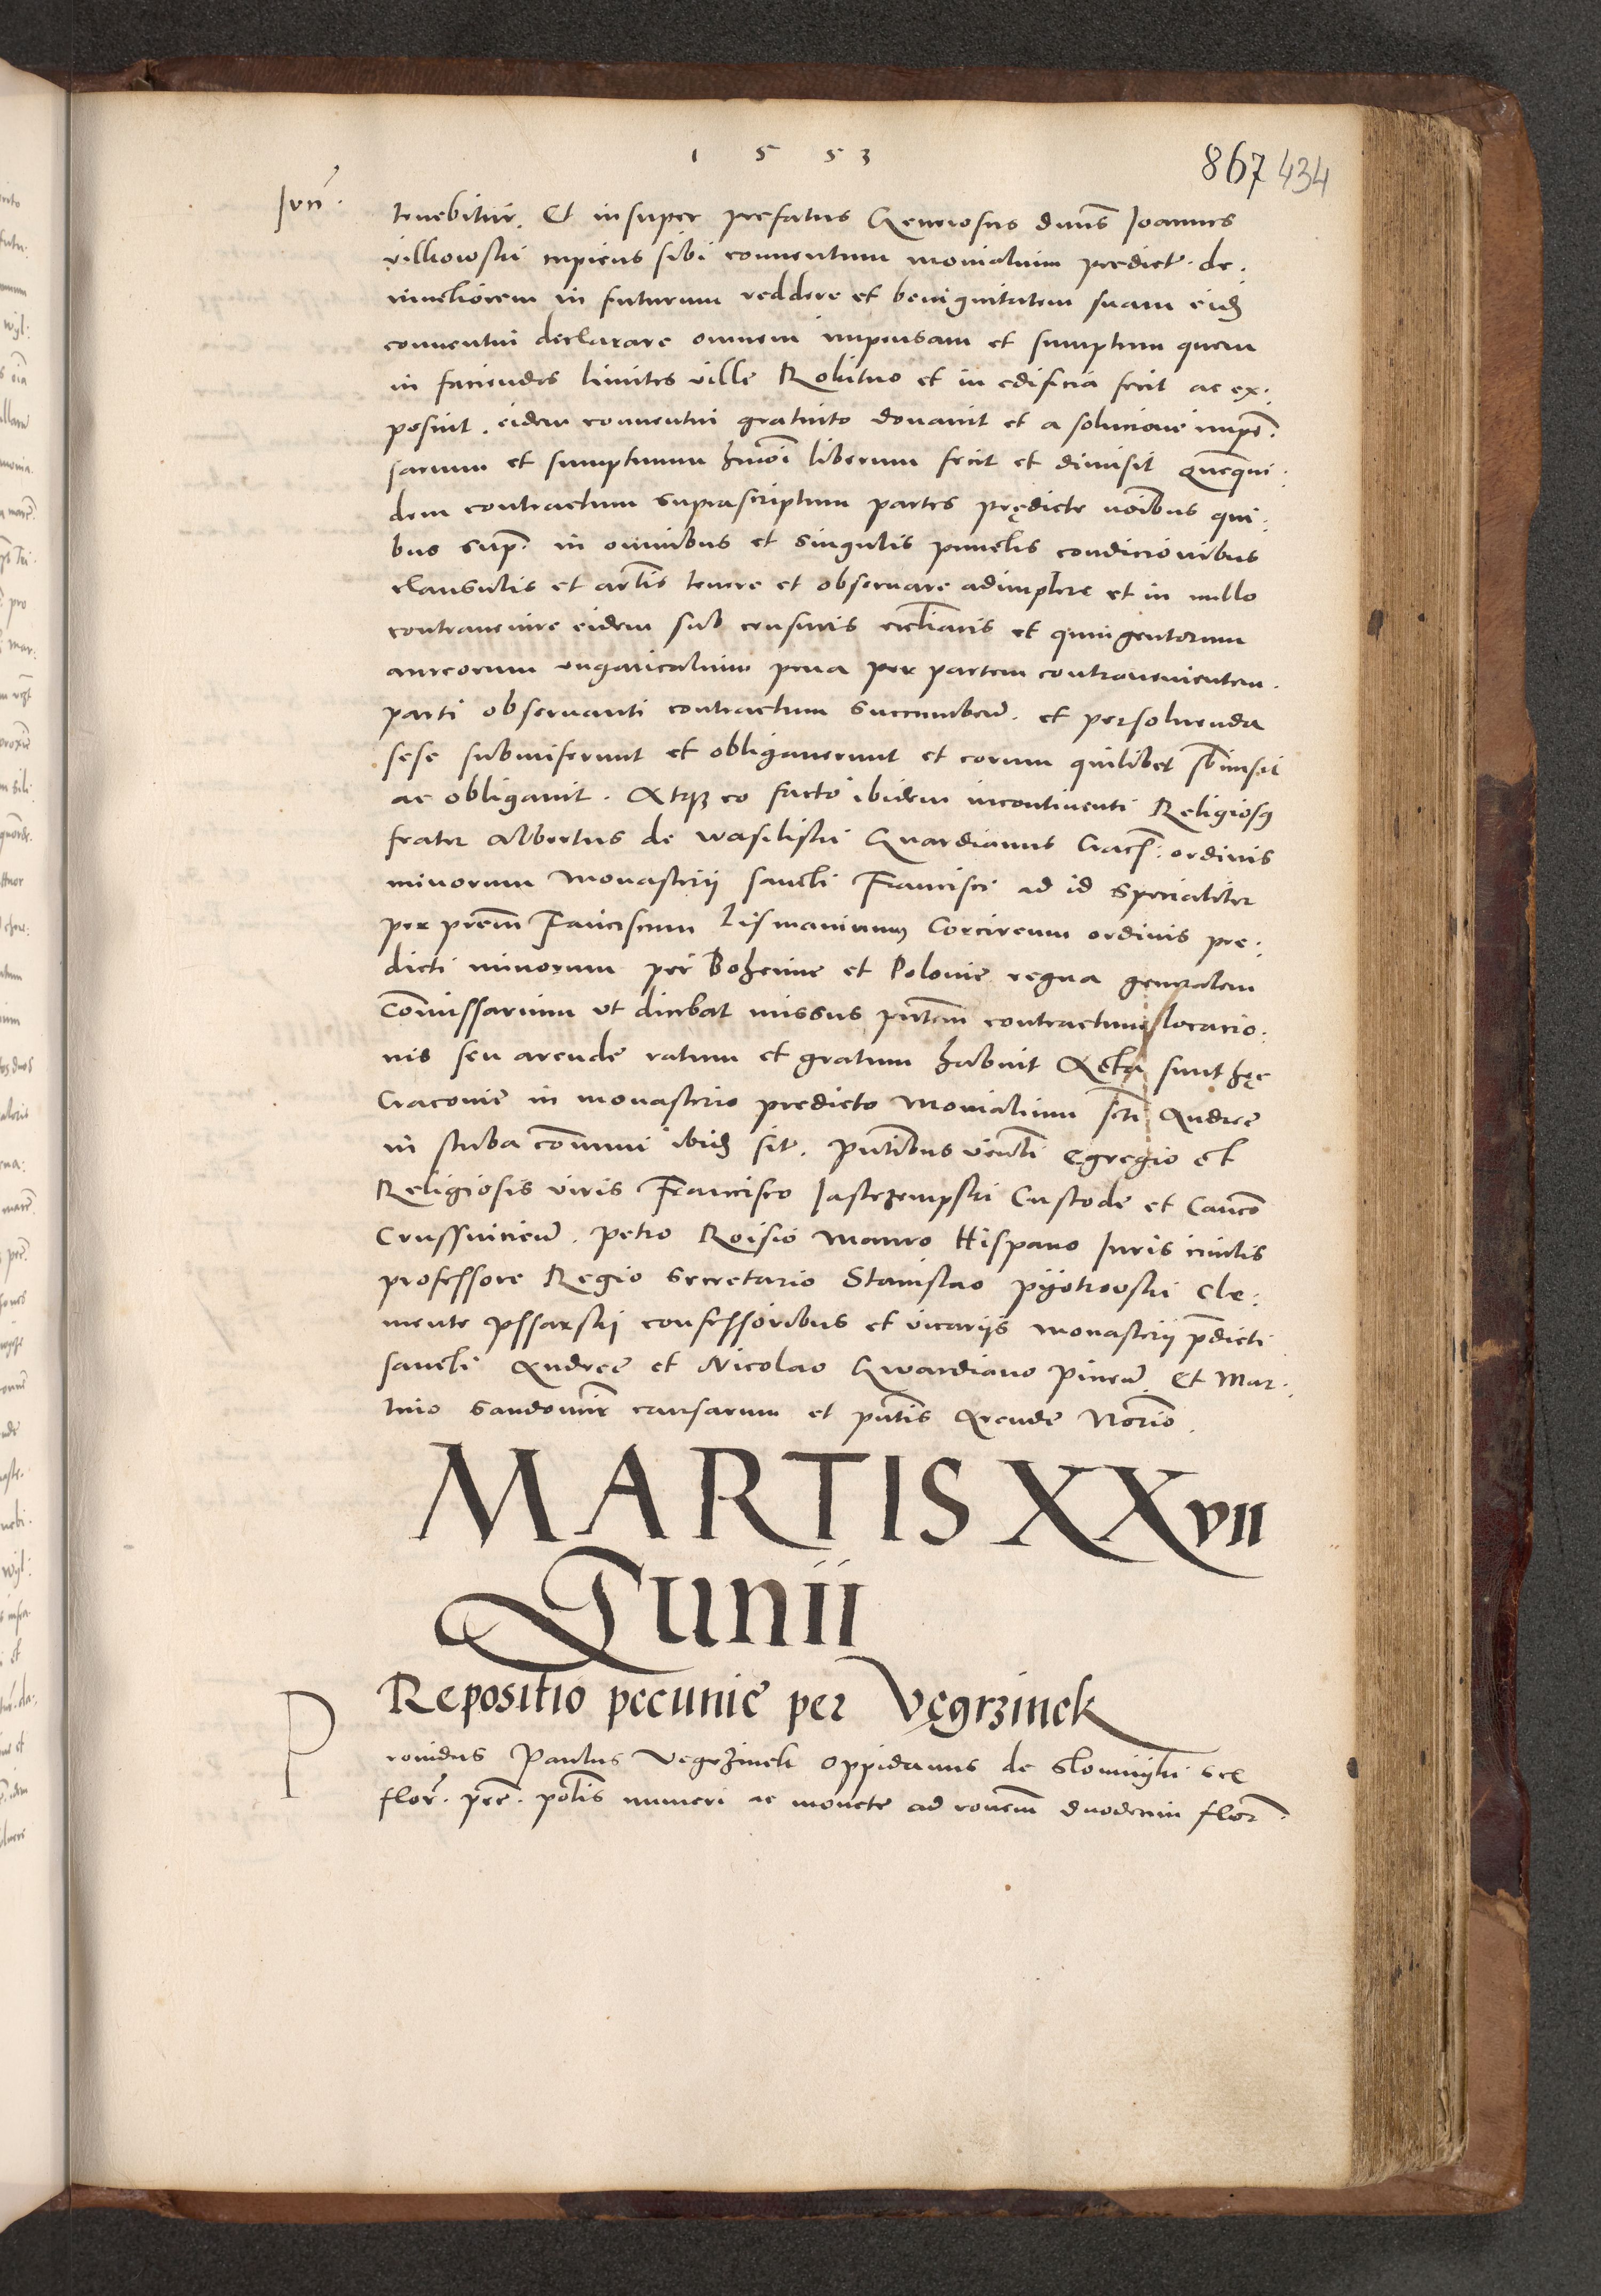 1 5 5 3
867 434
Jun̄.
tenebitur. Et insuper prefatus Generosus dn̄us Joannes
vilkowski cupiens sibi conuentum monialium predict. de:
uinctiorem in futurum reddere et benignitatem suam eid
conuentui declarare omnem impensam et sumptum quem
in faciendos limites ville Rokitno et in edificia fecit ac ex:
posuit, eidem conuentui gratuito donauit et a solucione impē:
sarum et sumptuum hmōi liberum fecit et dimisit Quēqui:
dem contractum suprascriptum partes prędicte nōibus qui:
bus sup. in omnibus et singulis punctis condicionibus
clausulis et artl̄is tenere et obseruare adimplere et in nullo
contrauenire eidem sub censuris eccl̄iaticis et quingentorum
aureorum vngaricalium pena per partem contrauenientem.
parti obseruanti contractum succumben̄. et persoluenda
sese submiserunt et obligauerunt et eorum quilibet sb̄misit
ac obligauit. Atqз eo facto ibidem incontinenti Religiosꝯ
frater Albertus de wasiliski Guardianus Crac̄. ordinis
minorum Monasterii sancti Francisci ad id specialiter
per prēm Franciscum Lismaninum Corcireum ordinis pre:
dicti minorum per Bohemie et Polonie regna generalem
Com̄issarium vt dicebat missus pn̄tem contractum locacio:
nis seu arende ratum et gratum habuit Acta sunt hęc
Cracovie in monasterio predicto Monialium scti Andree
in stuba com̄uni ibid sit. Pn̄tibus vēnli Egregio et
Religiosis viris Francisco Jastrzempski Custode et Cancō
Crussuicien̄. Petro Roisio Mauro Hispano Juris ciuilis
professore Regio Secretario Stanislao Pyotrowski Cle:
mente Pssarskij confessoribus et vicariis Monasterij p̄dicti
sancti Andree et Nicolao Gwardiano Pincen̄. Et Mar:
tino Sandomir̄ causarum et pn̄tis Arende Nōrio.
MARTIS XXVII
Junii
Repositio pecunie per Vęgrzinek
Prouidus Paulus Vegrzinek oppidanus de Slomnyki sex
flor̄. pēc. pōlis numeri ac monete ad rōnem duodecim flor̄.